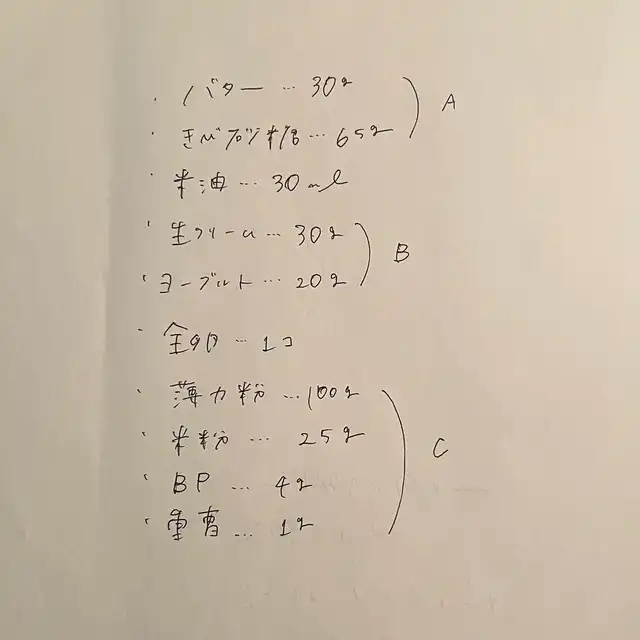 ・バター … 30g
・きびブドウ糖 … 65g
A
・米油 … 30ml
・生クリーム … 30g
・ヨーグルト … 20g
B
・全卵 … 1コ
・薄力粉 … 100g
・米粉 … 25g
・BP … 4g
・重曹 … 1g
C